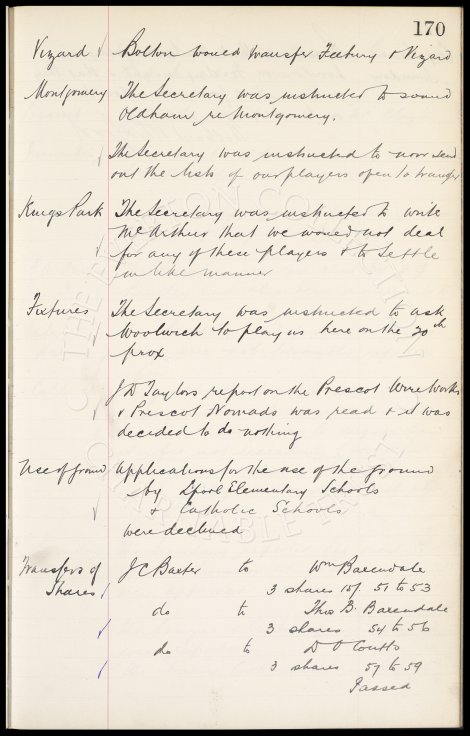 170
Vizzard Bolton would transfer Freebury & Vizard
Montgomery The Secretary was instructed to sound
Oldham re Montgomery.
The Secretary was instructed to now send
out the lists of our players open to transfer
Kings Park The Secretary was instructed to write
McArthur that we would not deal
for any of these players & to settle
in like manner
Fixtures The Secretary was instructed to ask
Woolwich to play us here on the 20th
prox
J D Taylors report on the Prescot Wire Works
& Prescot Nomads was read & it was
decided to do nothing
Use of Ground Applications for the use of the ground
by L'pool Elementary Schools
& Catholic Schools
were declined
Transfers of J C Baxter to Wm Baxendale
Shares 3 shares 51 to 53
do to Thos G. Baxendale
3 shares 54 to 56
do to D O Coutts
3 shares 57 to 59
Passed